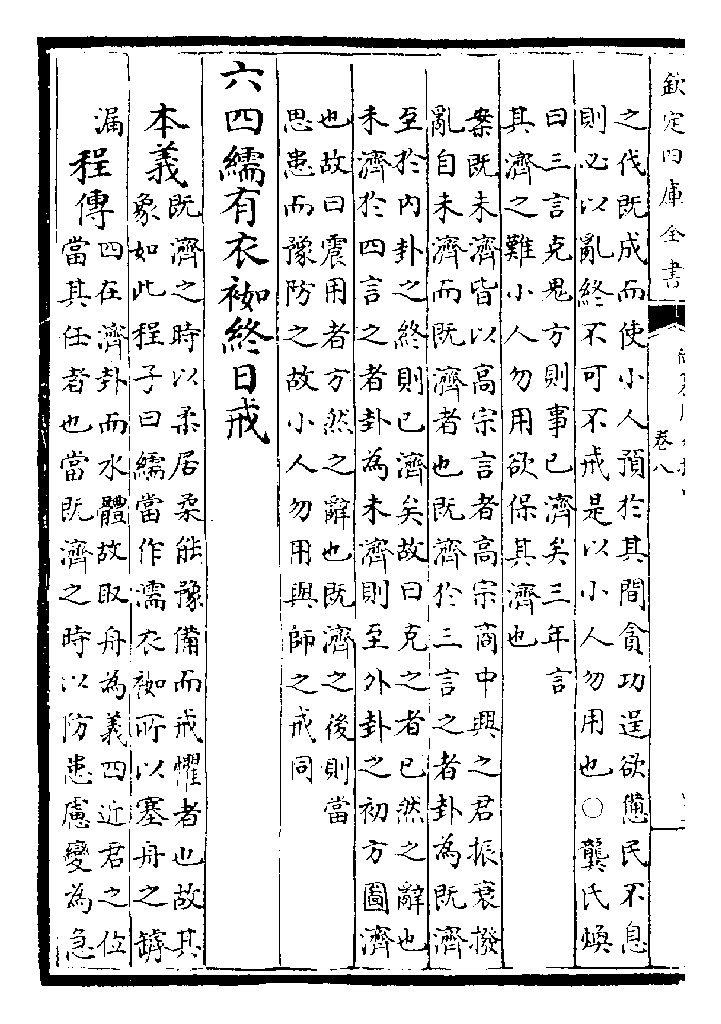 欽定四庫全書
卷八
之伐既成而使小人預於其間貪功逞欲憊民不息
則必以亂終不可不戒是以小人勿用也○龔氏煥
曰三言克鬼方則事已濟矣三年言
其濟之難小人勿用欲保其濟也
案既未濟皆以高宗言者高宗商中興之君振衰撥
亂自未濟而既濟者也既濟於三言之者卦為既濟
至於內卦之終則已濟矣故曰克之者已然之辭也
未濟於四言之者卦為未濟則至外卦之初方圖濟
也故曰震用者方然之辭也既濟之後則當
思患而豫防之故小人勿用與師之戒同
六四繻有衣袽終日戒
本義既濟之時以柔居柔能豫備而戒懼者也故其
象如此程子曰繻當作濡衣袽所以塞舟之罅
漏程傳四在濟卦而水體故取舟為義四近君之位
當其任者也當既濟之時以防患慮變為急